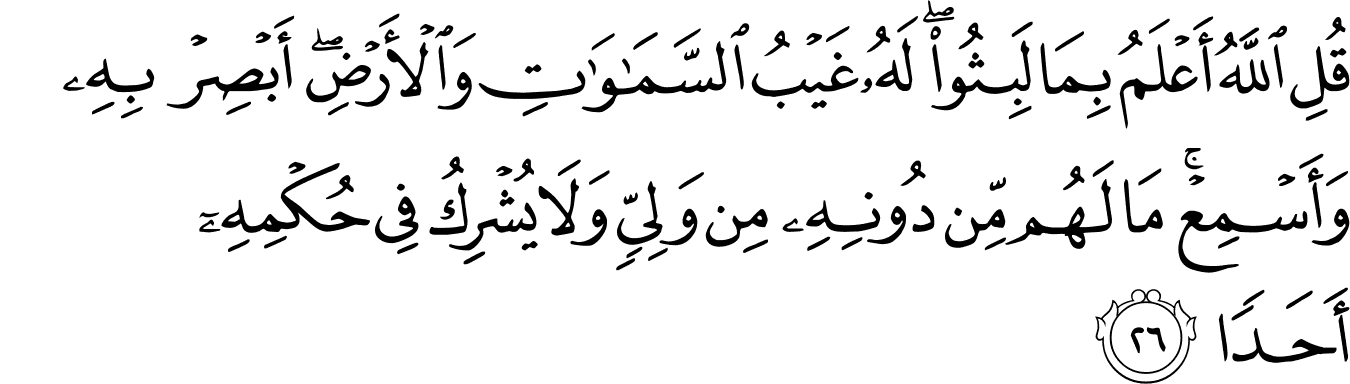 قُلِ ٱللَّهُ أَعۡلَمُ بِمَا لَبِثُواْۖ لَهُۥ غَيۡبُ ٱلسَّمَٰوَٰتِ وَٱلۡأَرۡضِۖ أَبۡصِرۡ بِهِۦ
وَأَسۡمِعۡۚ مَا لَهُم مِّن دُونِهِۦ مِن وَلِيّٖ وَلَا يُشۡرِكُ فِي حُكۡمِهِۦٓ
أَحَدٗا ٢٦